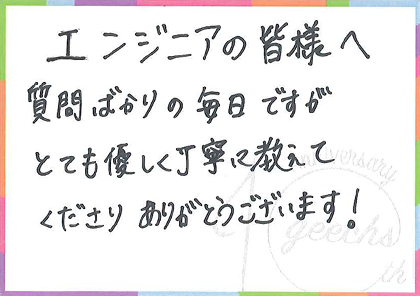 エンジニアの皆様へ
質問ばかりの毎日ですが
とても優しく丁寧に教えて
くださり ありがとうございます!
10
anniversary
geechs
th